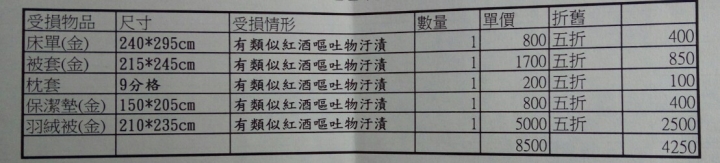 受損物品 尺寸 受損情形 數量 單價 折舊
床單(金) 240*295cm 有類似紅酒嘔吐物汙漬 1 800 五折 400
被套(金) 215*245cm 有類似紅酒嘔吐物汙漬 1 1700 五折 850
枕套 9分格 有類似紅酒嘔吐物汙漬 1 200 五折 100
保潔墊(金) 150*205cm 有類似紅酒嘔吐物汙漬 1 800 五折 400
羽絨被(金) 210*235cm 有類似紅酒嘔吐物汙漬 1 5000 五折 2500
8500 4250